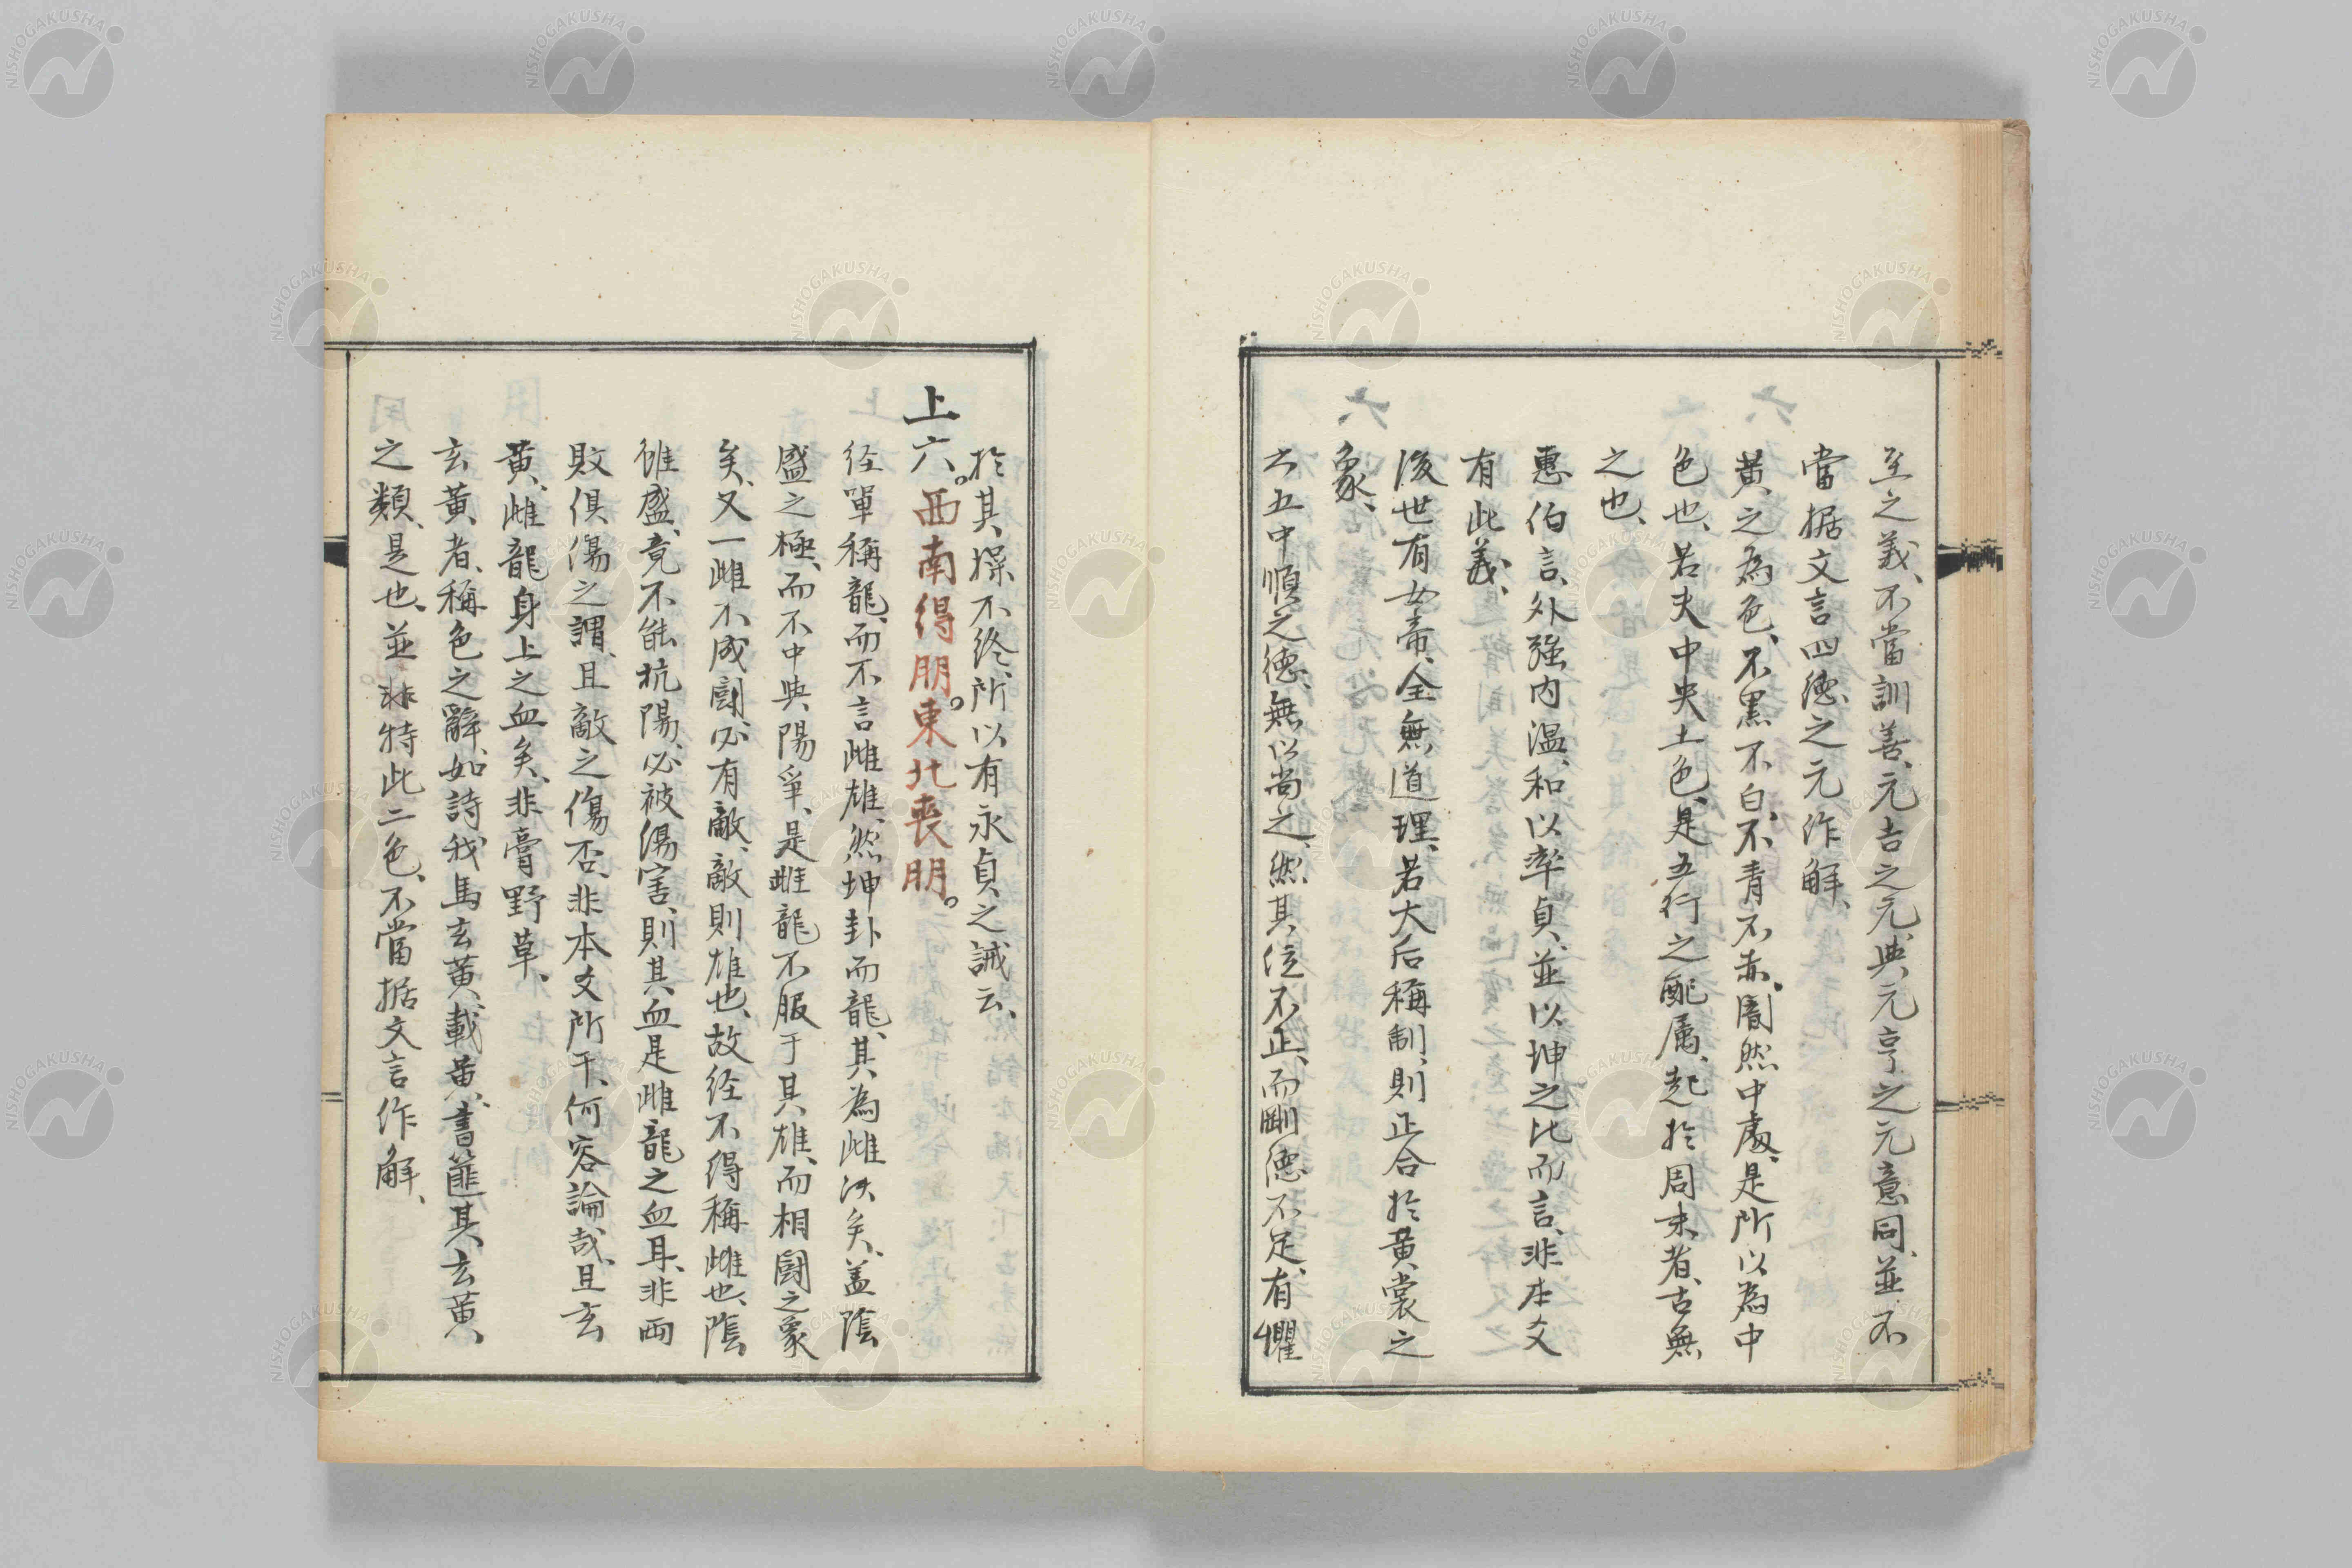 至之義、不當訓善、元吉之元、與元亨之元意同、並不
當据文言四德之元作解、
黃之為色、不黑不白、不青不赤、闇然中處、是所以為中
色也、若夫中央土色、是五行之配属、起於周末者、古無
之也、
惠伯言、外強内温、和以率貞、並以坤之比而言、非本爻
有此義、
後世有女帝、全無道理、若大后稱制、則正合於黃裳之
象、
六五中順之德、無以尚之、然其位不正、而剛德不足、有懼
於其操不終、所以有永貞之誡云、
上六。西南得朋。東北喪朋。
经單稱龍、而不言雌雄、然坤卦而龍、其為雌決矣、盖陰
盛之極、而不中與陽爭、是雌龍不服于其雄、而相鬪之象
矣、又一雌不成鬪、必有敵、敵則雄也、故经不得稱雌也、陰
雖盛、竟不能抗陽、必被傷害、則其血是雌龍之血耳、非両
敗俱傷之謂、且敵之傷否、非本爻所干、何容論哉、且玄
黃、雌龍身上之血矣、非膏野草、
玄黃者、稱色之辭、如詩我馬玄黃、載黃、書篚其玄黃、
之類、是也、並非特此二色、不當据文言作解、
NISHOGAKUSHA